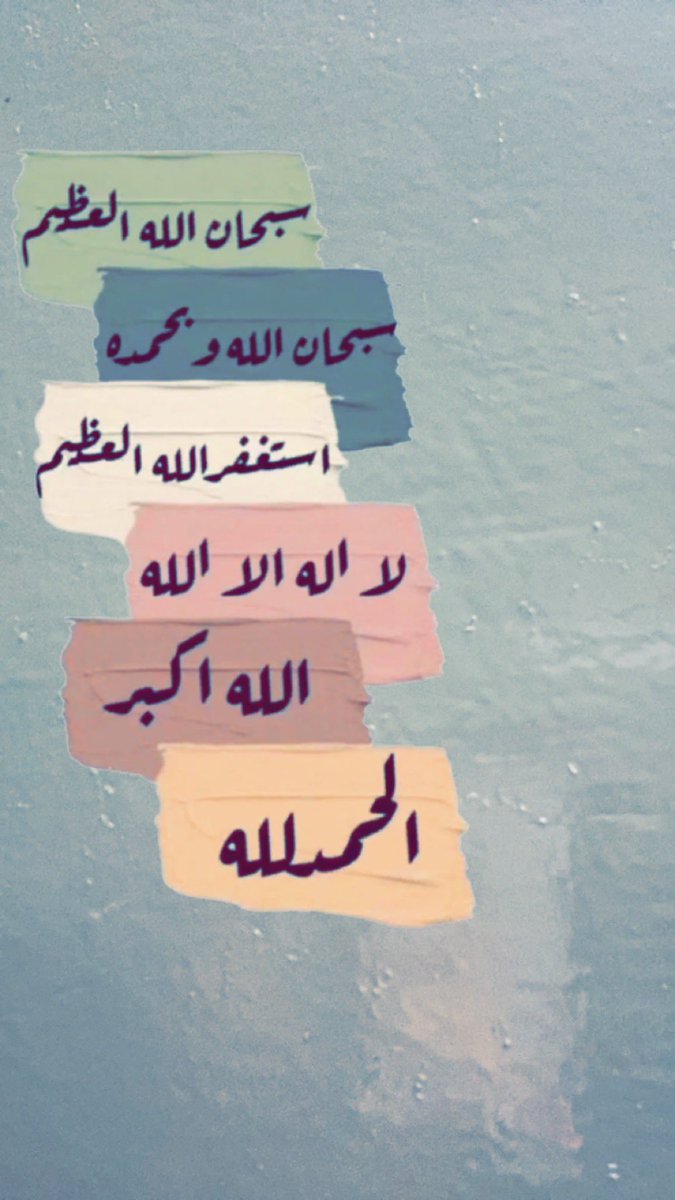 سبحان الله العظيم
سبحان الله و بحمده
استغفرالله العظيم
لا اله الا الله
الله اكبر
الحمدلله